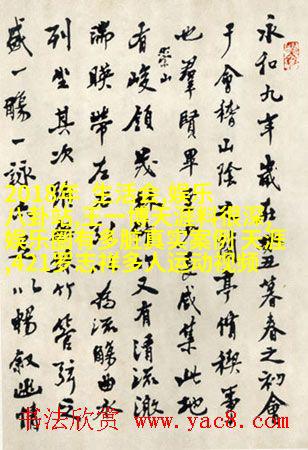 永和九年歲在丑暮春之初會
于會稽山陰亭脩稧事
也羣賢畢長咸集此地
有崇山峻領茂又有清流激
湍暎帶左為流觴曲水
列坐其次竹管弦之
盛一觴一詠以暢敘幽情
2018年_生活会,娱乐
八卦贴,王一博天涯料很深,
娱乐圈有多脏真实案例天涯
,421罗志祥多人运动视频
书法欣赏 www.yac8.com